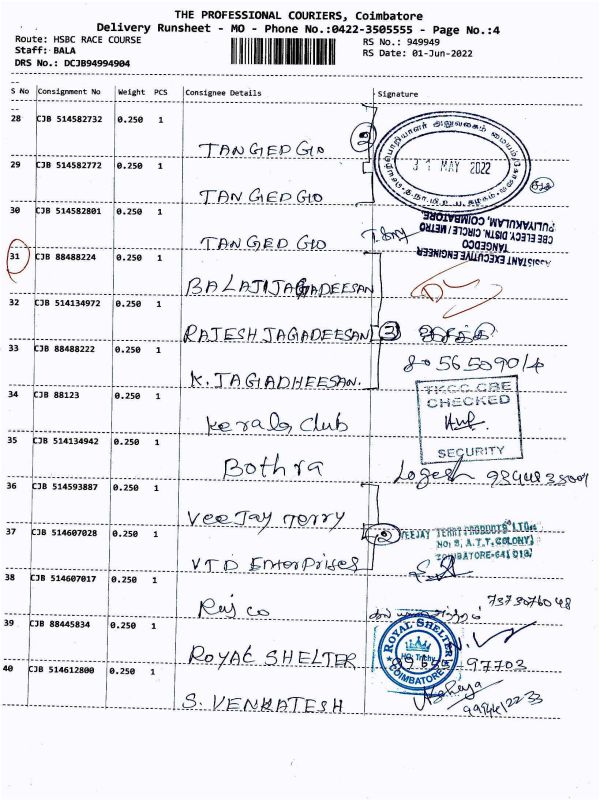 THE PROFESSIONAL COURIERS, Coimbatore
Delivery Runsheet - MO - Phone No.:0422-3505555 - Page No.:4
Route: HSBC RACE COURSE
RS No.: 949949
Staff: BALA
RS Date: 01-Jun-2022
DRS No.: DCJB94994904
S No Consignment No Weight PCS Consignee Details Signature
28 CJB 514582732 0.250 1 TANGEDGO
29 CJB 514582772 0.250 1 TANGEDGO
31 MAY 2022
30 CJB 514582801 0.250 1 TANGEDGO
ASSISTANT EXECUTIVE ENGINEER
TANGEDCO
CBE ELECY. DISTN. CIRCLE / METRO
PULIYAKULAM, COIMBATORE.
31 CJB 88488224 0.250 1 BALAJI JAGADEESAN
32 CJB 514134972 0.250 1 RAJESH JAGADEESAN
33 CJB 88488222 0.250 1 K. JAGADHEESAN.
34 CJB 88123 0.250 1 Kerala Club
CHECKED
SECURITY
35 CJB 514134942 0.250 1 Bothra Logesh
36 CJB 514593887 0.250 1 Veejay Terry
VEEJAY TERRY PRODUCTS LTD.
NO: 9, A.T.T. COLONY,
COIMBATORE-641 018
37 CJB 514607028 0.250 1 VTD Enterprises
38 CJB 514607017 0.250 1 Rajco 7373076048
39 CJB 88445834 0.250 1 ROYAL SHELTER
ROYAL SHELTER
COIMBATORE
97703
40 CJB 514612800 0.250 1 S. VENKATESH